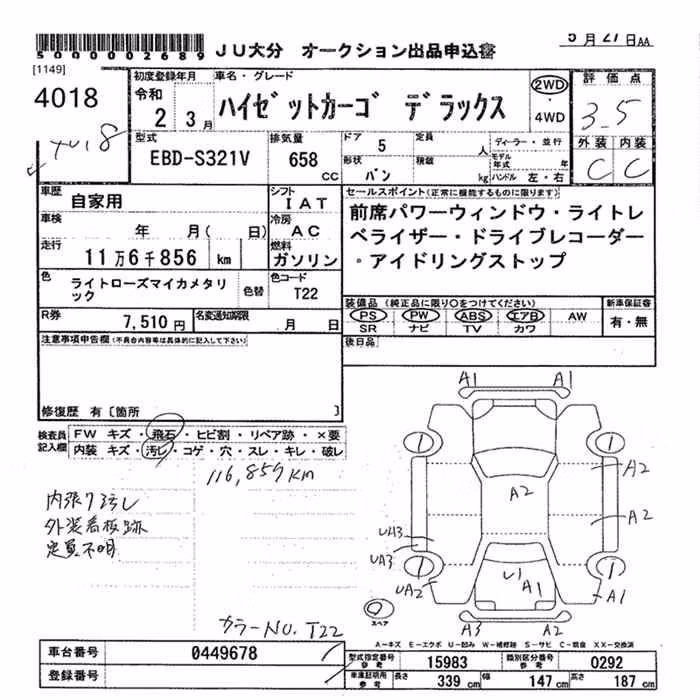 5000002689 JU大分 オークション出品申込書 5月27日AA
[1149]
4018
4018
初度登録年月 令和 2 3月
車名・グレード ハイゼットカーゴ デラックス
2WD・4WD
評価点 3.5
外装 内装
C C
型式 EBD-S321V
排気量 658 CC
ドア 5 定員 人
形状 バン 積載 kg
ディーラー・並行
モデル年式 年
ハンドル 左・右
車歴 自家用
シフト IAT
車検 年 月( 日)
冷房 AC
走行 11万6千856 km
燃料 ガソリン
色 ライトローズマイカメタリック
色替
色コード T22
R券 7,510円
名変通知期限 月 日
セールスポイント(正常に機能するものに限ります)
前席パワーウィンドウ・ライトレ
ベライザー・ドライブレコーダー
・アイドリングストップ
装備品(純正品に限り○をつけてください)
PS PW ABS エアB AW
SR ナビ TV カワ
新車保証書
有・無
後日品
注意事項申告欄(不具合内容等は具体的に記入して下さい)
修復歴 有〔箇所 〕
検査員記入欄
FW キズ・飛石・ヒビ割・リペア跡・×要
内装 キズ・汚レ・コゲ・穴・スレ・キレ・破レ
116,857KM
内張り汚し
外装看板跡
定員不明
カラーNO. T22
A1 A1
A2
A2
A2
UA3
UA3
UA2
U1
A1
A1
A3 A2
スペア
A-キズ E-エクボ U-凹み W-補修跡 S-サビ C-腐食 XX-交換済
車台番号 0449678
登録番号
型式指定番号 参考 15983
類別区分番号 参考 0292
車庫証明用 参考 長さ 339 cm 幅 147 cm 高さ 187 cm